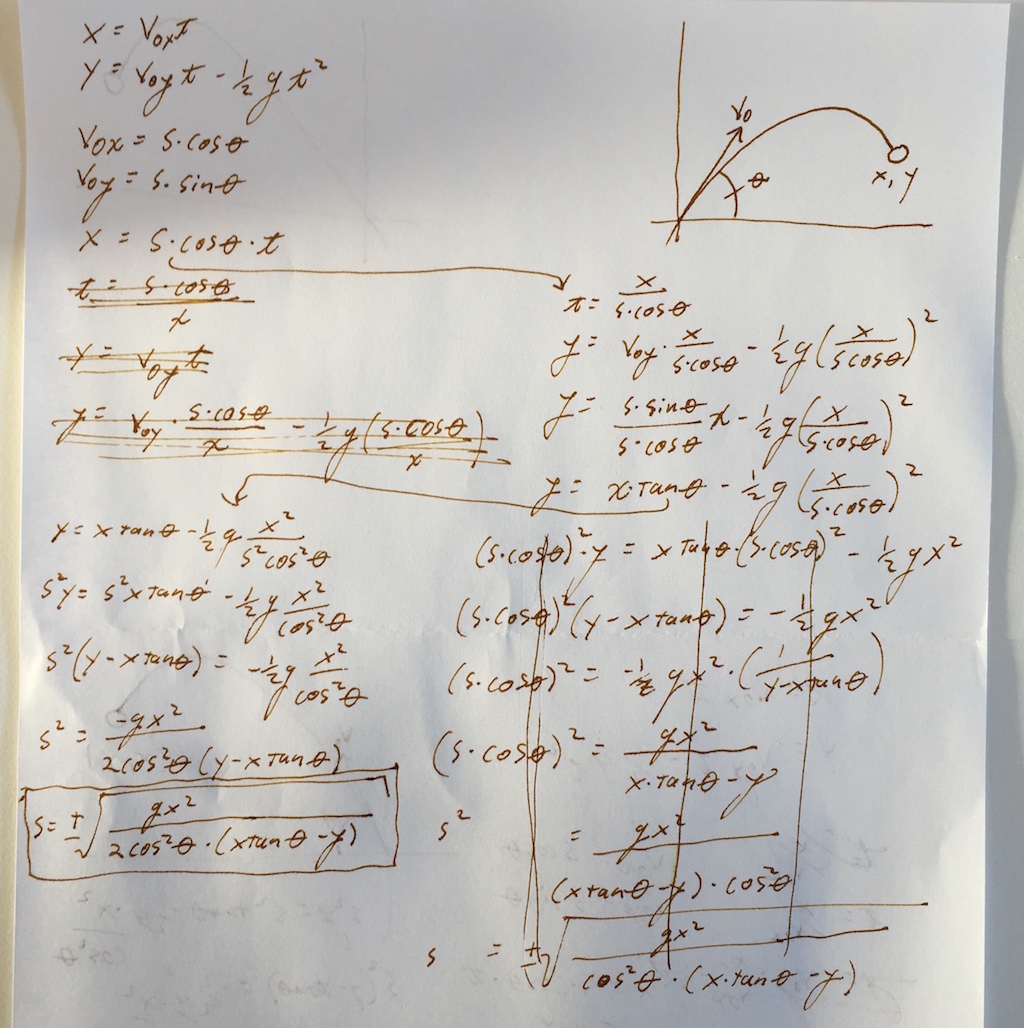 x = v₀ₓt
y = v₀y t - ½ g t²
v₀x = s·cosθ
v₀y = s·sinθ
x = s·cosθ·t
t = s·cosθ / x
y = v₀y t
y = v₀y · s·cosθ / x - ½ g (s·cosθ / x)
v₀
θ
x, y
t = x / s·cosθ
y = v₀y · x / s·cosθ - ½ g (x / s cosθ)²
y = s·sinθ / s·cosθ x - ½ g (x / s·cosθ)²
y = x·tanθ - ½ g (x / s·cosθ)²
y = x tanθ - ½ g x² / s² cos²θ
s²y = s² x tanθ - ½ g x² / cos²θ
s² (y - x tanθ) = -½ g x² / cos²θ
s² = -gx² / 2cos²θ (y - x tanθ)
s = ± √ gx² / 2cos²θ · (x tanθ - y)
(s·cosθ)² · y = x tanθ · (s·cosθ)² - ½ g x²
(s·cosθ)² (y - x tanθ) = -½ gx²
(s·cosθ)² = -½ gx² · (1 / y - x tanθ)
(s·cosθ)² = gx² / x·tanθ - y
s² = gx² / (x tanθ - y) · cos²θ
s = ± √ gx² / cos²θ · (x·tanθ - y)